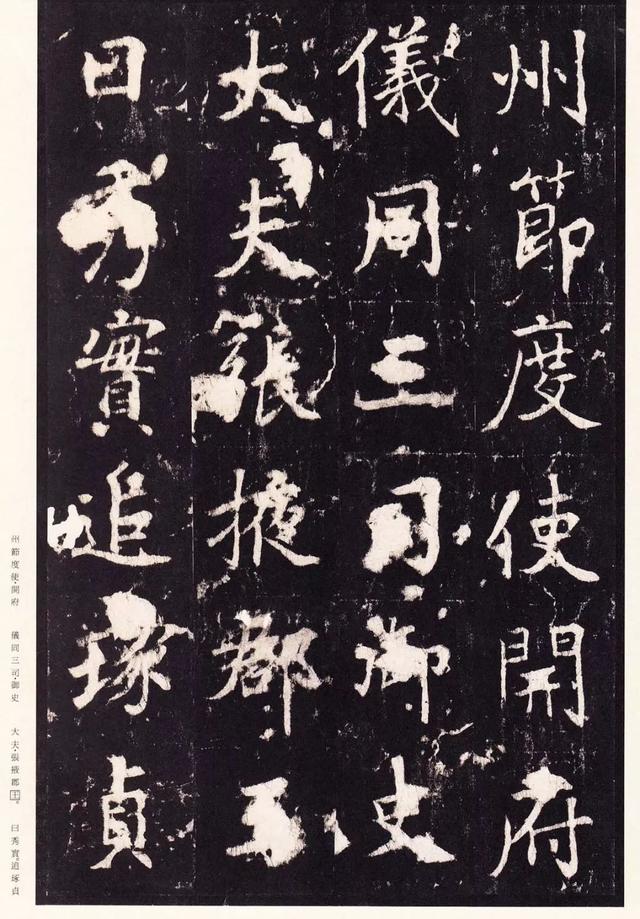 州節度使開府
儀同三司御史
大夫張掖郡王
曰秀實追琢貞
州節度使·開府　儀同三司·御史　大夫·張掖郡王。　曰秀實。追琢貞